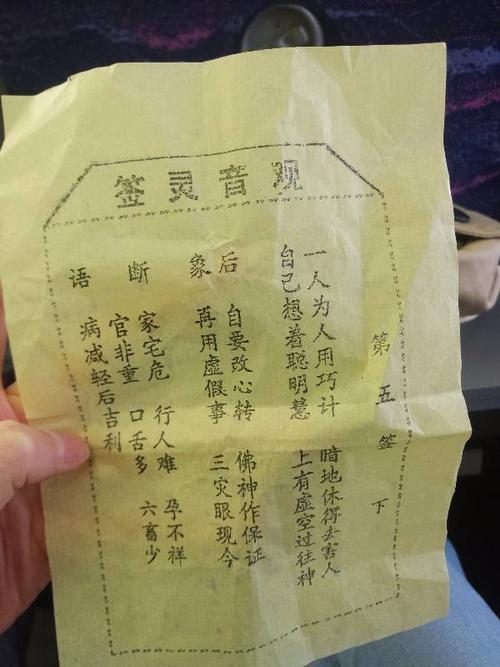 观音灵签
第五签 下
一人为人用巧计 暗地休得去害人
自己想着聪明慧 上有虚空过往神
后象
自要改心转 佛神作保证
再用虚假事 三灾眼现今
断语
家宅危 行人难 孕不祥
官非重 口舌多 六畜少
病减轻后吉利